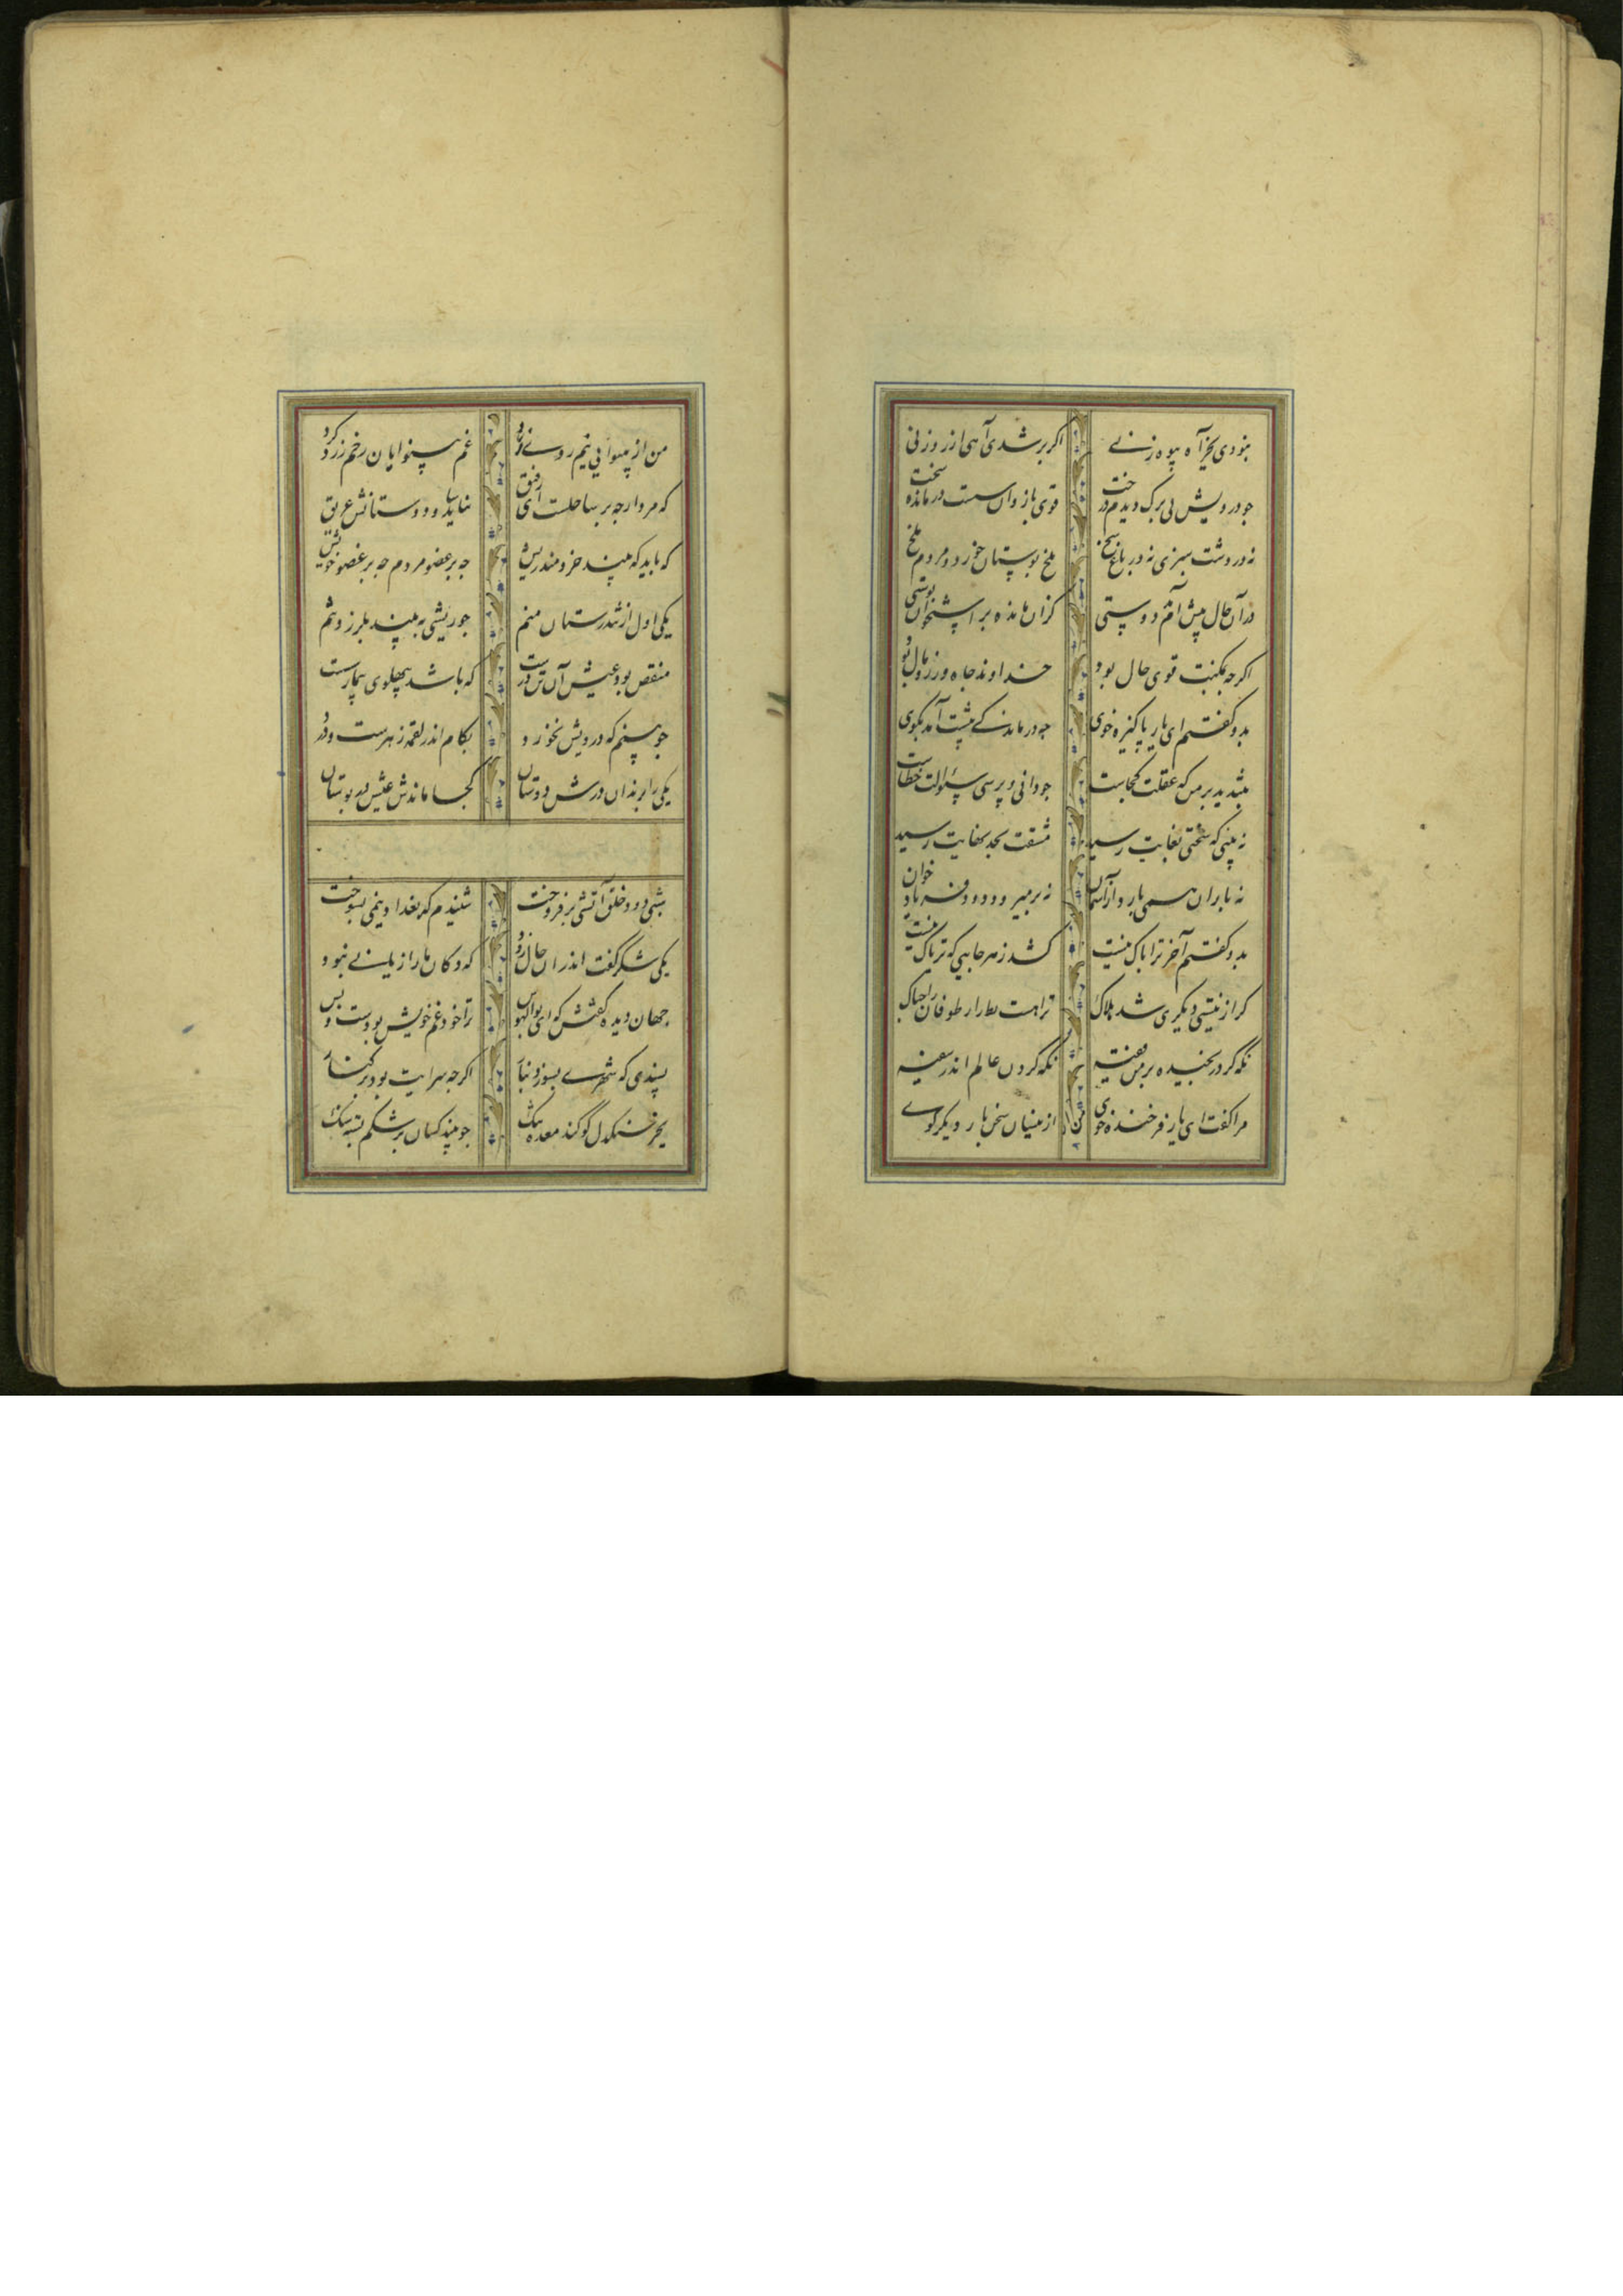 بنودی بجز آه بیوه زنی اکر برشدی آهی از روزنی
جو درویش بی برک دیدم درخت قوی بازوان سست درمانده سخت
نه در دشت سبزی نه در باغ شخ ملخ بوستان خورد و مردم ملخ
در آن حال پیش آمدم دوستی کزان مانده بر استخوان پوستی
اکرجه بمکنت قوی حال بود خداوند جاه و زر و مال بود
بدو کفتم ای یار پاکیزه خوی جه درماندکی پیشت آمد بکوی
بتندید بر من که عقلت کجاست جو دانی و پرسی سئوالت خطاست
نه بینی که سختی بغایت رسید مشقت بحد نهایت رسید
نه باران همی بارد از آسمان نه بر میرود دود فریاد خوان
بدو کفتم آخر ترا باک نیست کشد زهر جایی که تریاک نیست
کر از نیستی دیکری شد هلاک ترا هست بط را ز طوفان جه باک
نکه کرد رنجیده بر من فقیه نکه کردن عالم اندر سفیه
مرا کفت ای یار فرخنده خوی ازینسان سخن بار دیکر مکوی
من از بینوایی نیم روی زرد غم بینوایان رخم زرد کرد
که مرد ارجه بر ساحلست ای رفیق نیاساید و دوستانش غریق
که باید که بیند خردمند ریش جه بر عضو مردم جه بر عضو خویش
یکی اول از تندرستان منم جو ریشی به بینم بلرزد تنم
منقص بود عیش آن تن درست که باشد بپهلوی بیمار سست
جو بینم که درویش نخورد بکام اندر لقمه زهرست و درد
یکی را بزندان درش دوستان کجا ماندش عیش در بوستان
شبی دود خلق آتشی بر فروخت شنیدم که بغداد نیمی بسوخت
یکی شکر کفت اندران حال زود که دکان ما را زیانی نبود
جهان دیده کفتش که ای بوالهوس ترا خود غم خویش بودست و بس
پسندی که شهری بسوزد بنار اکرجه سرایت بود بر کنار
بجز سنکدل کو کند معده تنک جو بیند کسان بر شکم بسته سنک